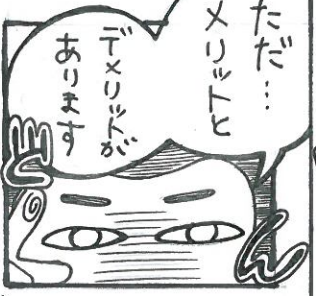 ただ…
メリットと
デメリットが
あります